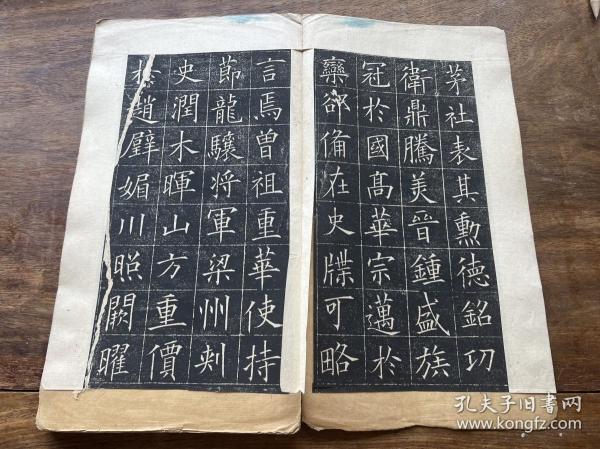 茅社表其勳德銘功
衛鼎騰美晉鍾盛族
冠於國高華宗邁於
欒郤俻在史牒可略
言焉曽祖重華使持
節龍驤將軍梁州刾
史潤木暉山方重價
於趙璧媚川照闕曜
孔夫子旧書网
www.kongfz.com